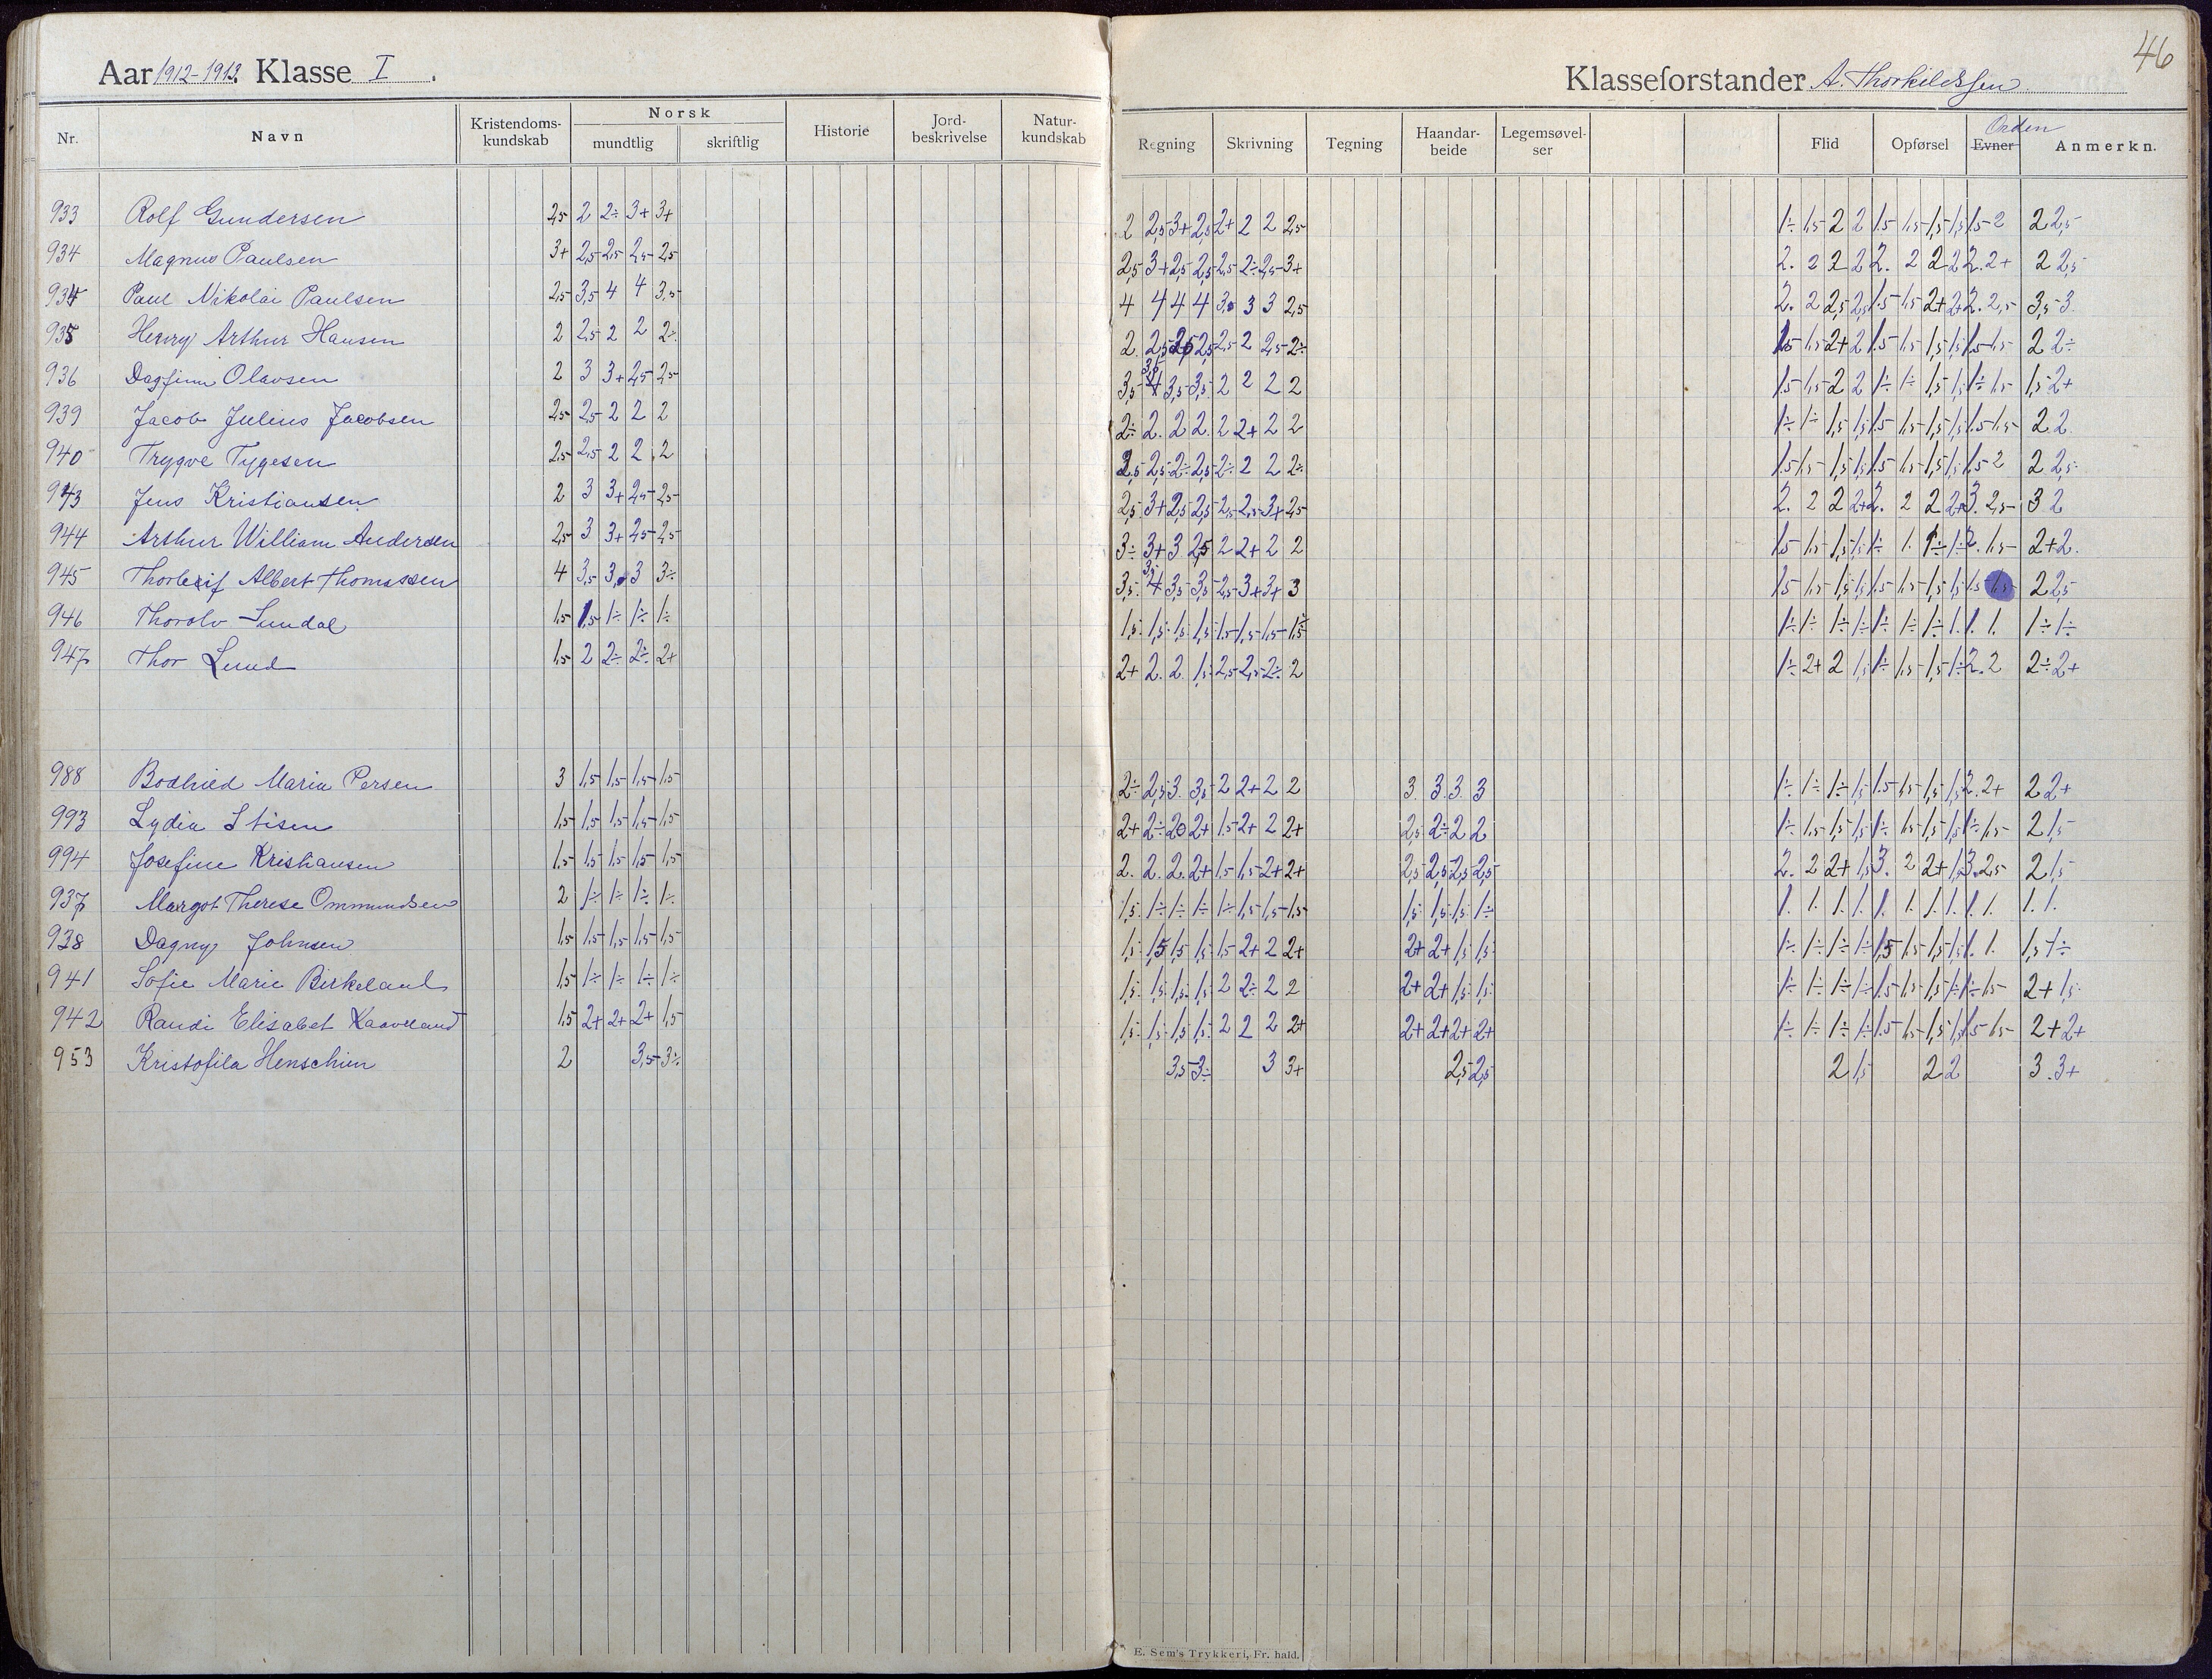 Aar 1912-1913. Klasse I.
Klasseforstander A. Thorkildssen
46
Nr. Navn Kristendoms-kundskab Norsk mundtlig skriftlig Historie Jord-beskrivelse Natur-kundskab Regning Skrivning Tegning Haandar-beide Legemsøvel-ser Flid Opførsel Evner Orden Anmerkn.
933 Rolf Gundersen 2,5 2 2÷ 3+ 3+ 2 2,5 3+ 2,5 2+ 2 2 2,5 1÷ 1,5 2 2 1.5 1,5 1,5 1,5 1.5 2 2 2,5
934 Magnus Paulsen 3+ 2,5 2,5 2,5 2,5 2,5 3+ 2,5 2,5 2,5 2÷ 2,5 3+ 2. 2 2 2 2. 2 2 2 2. 2+ 2 2,5
934 Paul Nikolai Paulsen 2,5 3,5 4 4 3,5 4 4 4 4 3. 3 3 2,5 2. 2 2,5 2,5 1.5 1,5 2+ 2+ 2. 2,5 3,5 3.
935 Henry Arthur Hansen 2 2,5 2 2 2÷ 2. 2,5 2,5 2,5 2,5 2 2,5 2÷ 1.5 1,5 2+ 2 1.5 1,5 1,5 1,5 1.5 1,5 2 2÷
936 Dagfinn Olavsen 2 3 3+ 2,5 2,5 3,5 4 3,5 3,5 2 2 2 2 1.5 1,5 2 2 1÷ 1÷ 1,5 1,5 1÷ 1,5 1,5 2+
939 Jacob Julius Jacobsen 2,5 2,5 2 2 2 2÷ 2. 2 2. 2 2+ 2 2 1÷ 1÷ 1,5 1,5 1.5 1,5 1,5 1,5 1.5 1,5 2.2.
940 Trygve Tygesen 2,5 2,5 2 2 2 2,5 2,5 2÷ 2,5 2÷ 2 2 2÷ 1.5 1,5 1,5 1,5 1.5 1,5 1,5 1,5 1.5 2 2 2,5
943 Jens Kristiansen 2 3 3+ 2,5 2,5 2,5 3+ 2,5 2,5 2,5 2,5 3+ 2,5 2. 2 2 2+ 2. 2 2 2+ 3. 2,5 3 2
944 Arthur William Andersen 2,5 3 3+ 2,5 2,5 3÷ 3+ 3 2,5 2 2+ 2 2 1.5 1,5 1,5 1,5 1÷ 1. 1÷ 1÷ 2. 1,5 2+ 2.
945 Thorleif Albert Thomassen 4 3,5 3. 3 3÷ 3,5 4 3,5 3,5 2,5 3+ 3+ 3 1.5 1,5 1,5 1,5 1.5 1,5 1,5 1,5 1.5 1,5 2 2,5
946 Thorolv Sundal 1,5 1,5 1÷ 1÷ 1÷ 1,5 1,5 1,5 1,5 1.5 1,5 1,5 1,5 1÷ 1÷ 1÷ 1÷ 1÷ 1÷ 1÷ 1. 1. 1. 1÷ 1÷
947 Thor Lund 1,5 2 2÷ 2÷ 2+ 2+ 2. 2 1,5 2,5 2,5 2÷ 2 1÷ 2+ 2 1,5 1÷ 1,5 1,5 1÷ 2. 2 2÷ 2+
988 Bodhild Maria Persen 3 1,5 1,5 1,5 1,5 2÷ 2,5 3. 3,5 2 2+ 2 2 3. 3. 3. 3 1÷ 1÷ 1÷ 1,5 1.5 1,5 1,5 1,5 2. 2+ 2 2+
993 Lydia Stisen 1,5 1,5 1,5 1,5 1,5 2+ 2÷ 2 2+ 1.5 2+ 2 2+ 2,5 2÷ 2 2 1÷ 1,5 1,5 1,5 1÷ 1,5 1,5 1,5 1÷ 1,5 2 1,5
994 Josefine Kristiansen 1,5 1,5 1,5 1,5 1,5 2. 2. 2. 2+ 1.5 1,5 2+ 2+ 2,5 2,5 2,5 2,5 2. 2 2+ 1,5 3. 2 2+ 1,5 3. 2,5 2 1,5
937 Margot Therese Ommundsen 2 1÷ 1÷ 1÷ 1÷ 1,5 1÷ 1÷ 1÷ 1÷ 1,5 1,5 1,5 1,5 1,5 1,5 1÷ 1. 1. 1. 1. 1. 1. 1. 1. 1. 1. 1. 1.
938 Dagny Johnsen 1,5 1,5 1,5 1,5 1,5 1,5 1,5 1,5 1,5 1.5 2+ 2 2+ 2+ 2+ 1,5 1,5 1÷ 1÷ 1÷ 1÷ 1,5 1,5 1,5 1,5 1. 1. 1,5 1÷
941 Sofie Marie Birkeland 1,5 1÷ 1÷ 1÷ 1÷ 1,5 1,5 1,5 1,5 2 2÷ 2 2 2+ 2+ 1,5 1,5 1÷ 1÷ 1÷ 1÷ 1.5 1,5 1,5 1÷ 1÷ 1,5 2+ 1,5
942 Randi Elisabet Kaaveland 1,5 2+ 2+ 2+ 1,5 1,5 1,5 1,5 1,5 2 2 2 2+ 2+ 2+ 2+ 2+ 1÷ 1÷ 1÷ 1÷ 1.5 1,5 1,5 1,5 1.5 1,5 2+ 2+
953 Kristofila Henschien 2 3,5 3÷ 3,5 3÷ 3 3+ 2,5 2,5 2 1,5 2 2 3. 3+
E. Sem's Trykkeri, Fr. hald.